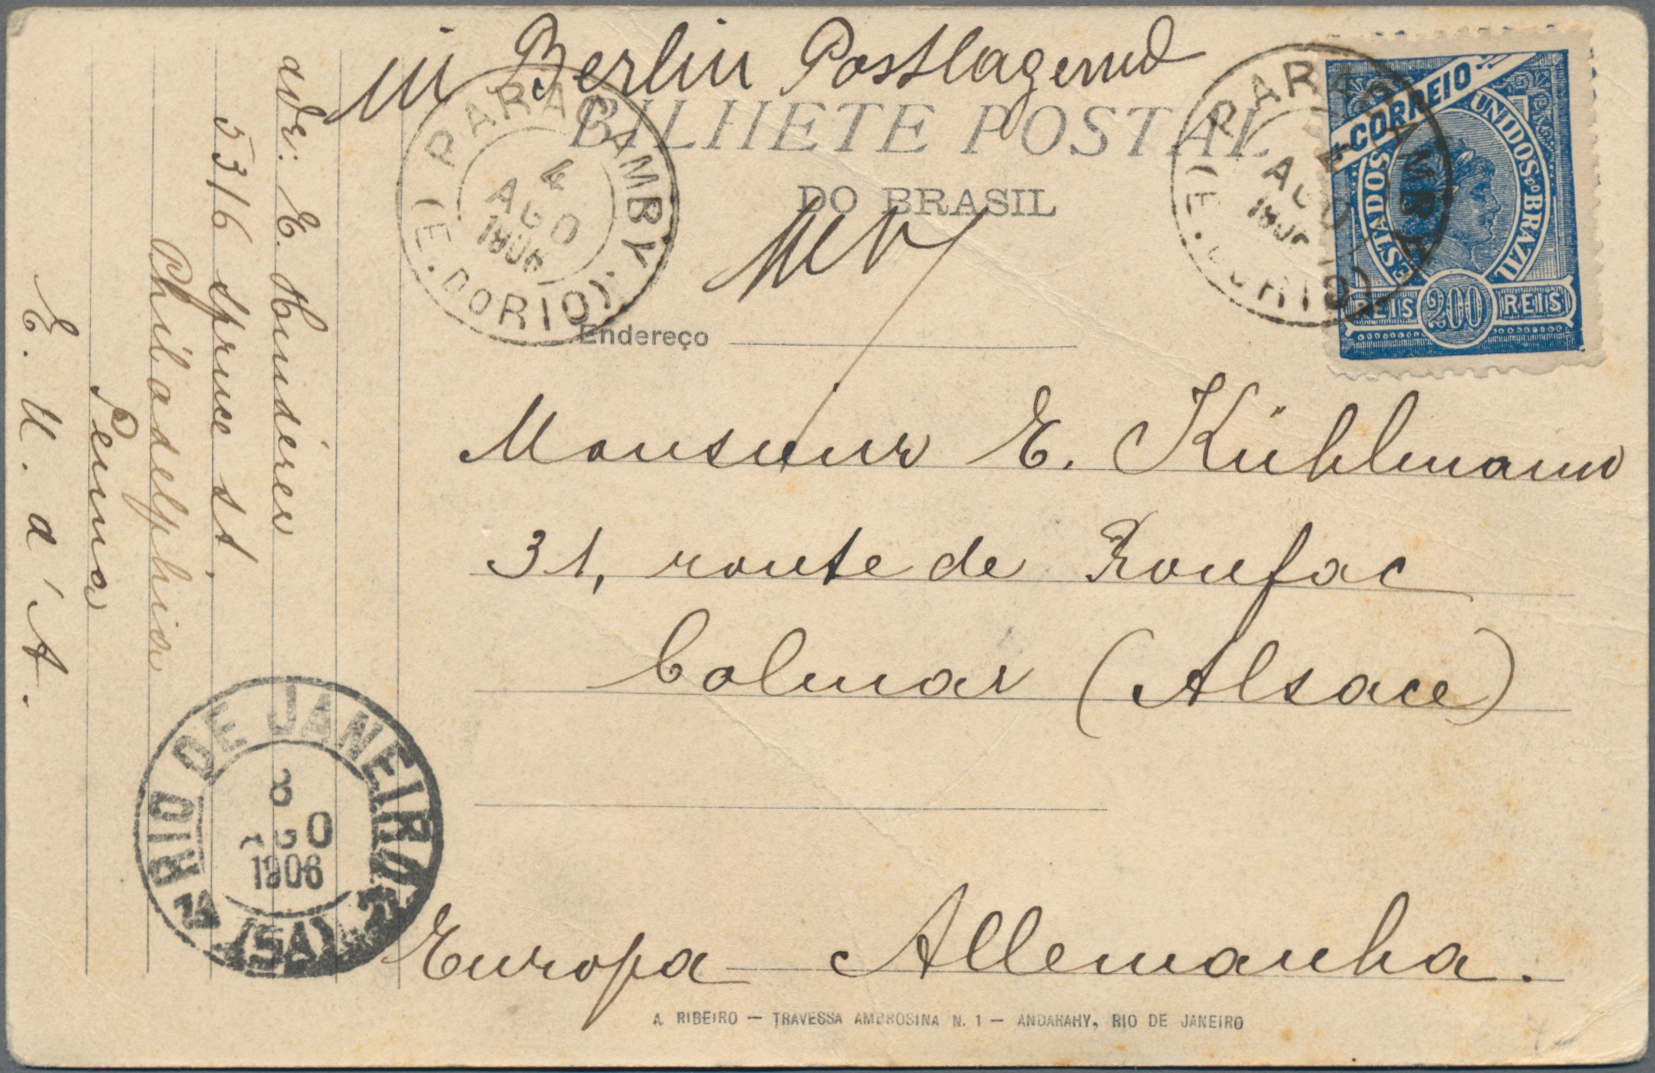 in Berlin Postlagernd
BILHETE POSTAL
DO BRASIL
CORREIO
ESTADOS UNIDOS DO BRAZIL
REIS 200 REIS
PARACAMBY
4
AGO
1906
(E. DO RIO)
PARACAMBY
4
AGO
1906
(E. DO RIO)
Endereço
Monsieur E. Kühlmann
31, route de Roufac
Colmar (Alsace)
Europa Allemanha.
adr: E.
5316 Spruce st.
Philadelphia
Penna
E. U. d'A.
RIO DE JANEIRO
8
AGO
1906
(SA)
A. RIBEIRO — TRAVESSA AMBROSINA N. 1 — ANDARAHY, RIO DE JANEIRO